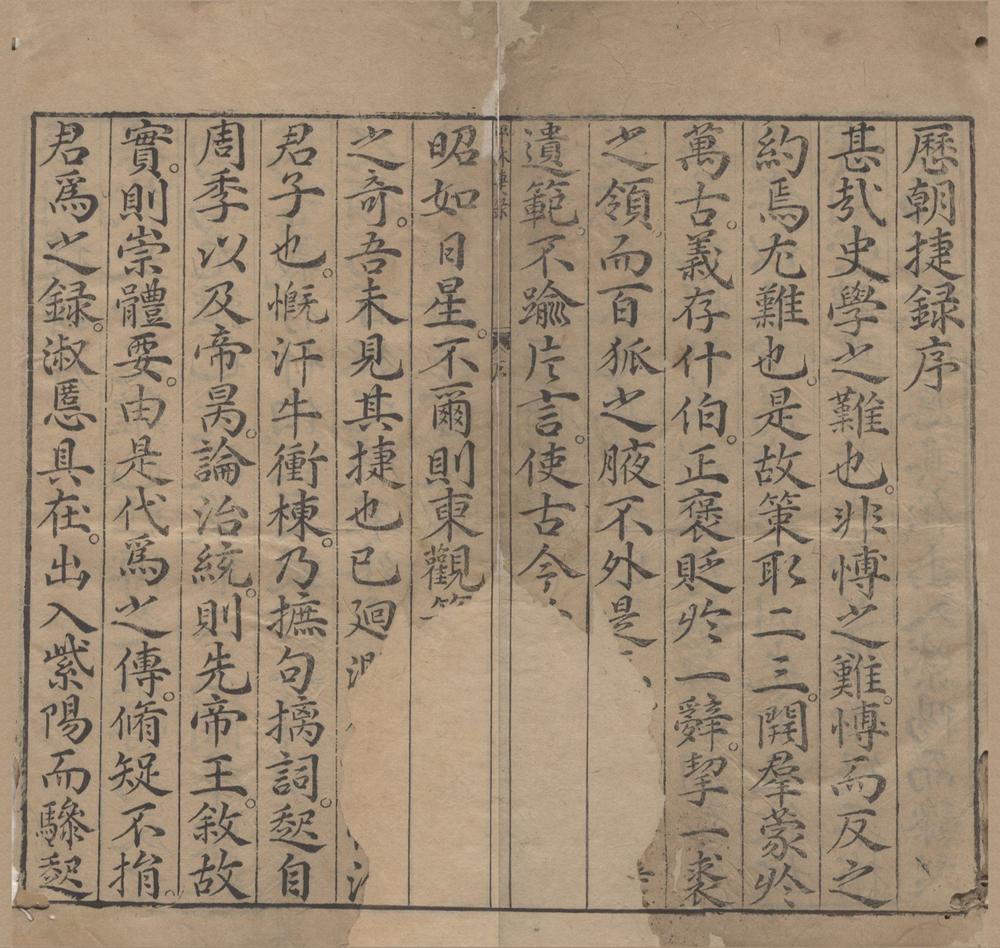 歷朝捷録序
甚㢤史學之難也。非愽之難愽而反之
約焉尤難也。是故策取二三。開羣蒙扵
萬古。義存什伯。正褒貶扵一辭。挈一裘
之領。而百狐之腋不外是
遺範。不踰片言。使古今
昭如日星。不爾則東觀
之奇。吾未見其捷也已廻
君子也。慨汗牛衝棟。乃摭句摛詞。起自
周季以及帝昺。論治統。則先帝王。敘故
實。則崇體要。由是代爲之傳。脩短不捐。
君爲之録。淑慝具在。出入紫陽而驂起